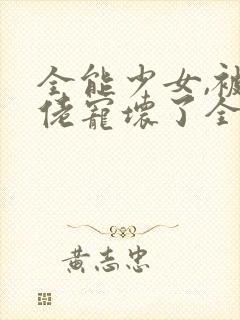 全能少女,被
佬寵壞了全
黃志忠